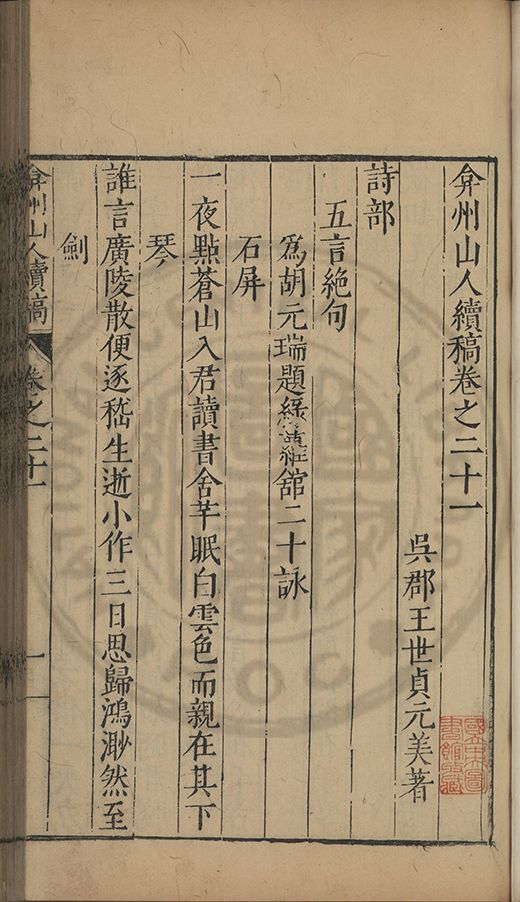 弇州山人續稿卷之二十一
吳郡王世貞元美著
詩部
五言絶句
為胡元瑞題綠蘿館二十詠
石屏
一夜點蒼山入君讀書舍芊眠白雲色而親在其下
琴
誰言廣陵散便逐嵇生逝小作三日思歸鴻渺然至
劍
弇州山人續稿
卷之二十一
一
國立中央圖書館藏